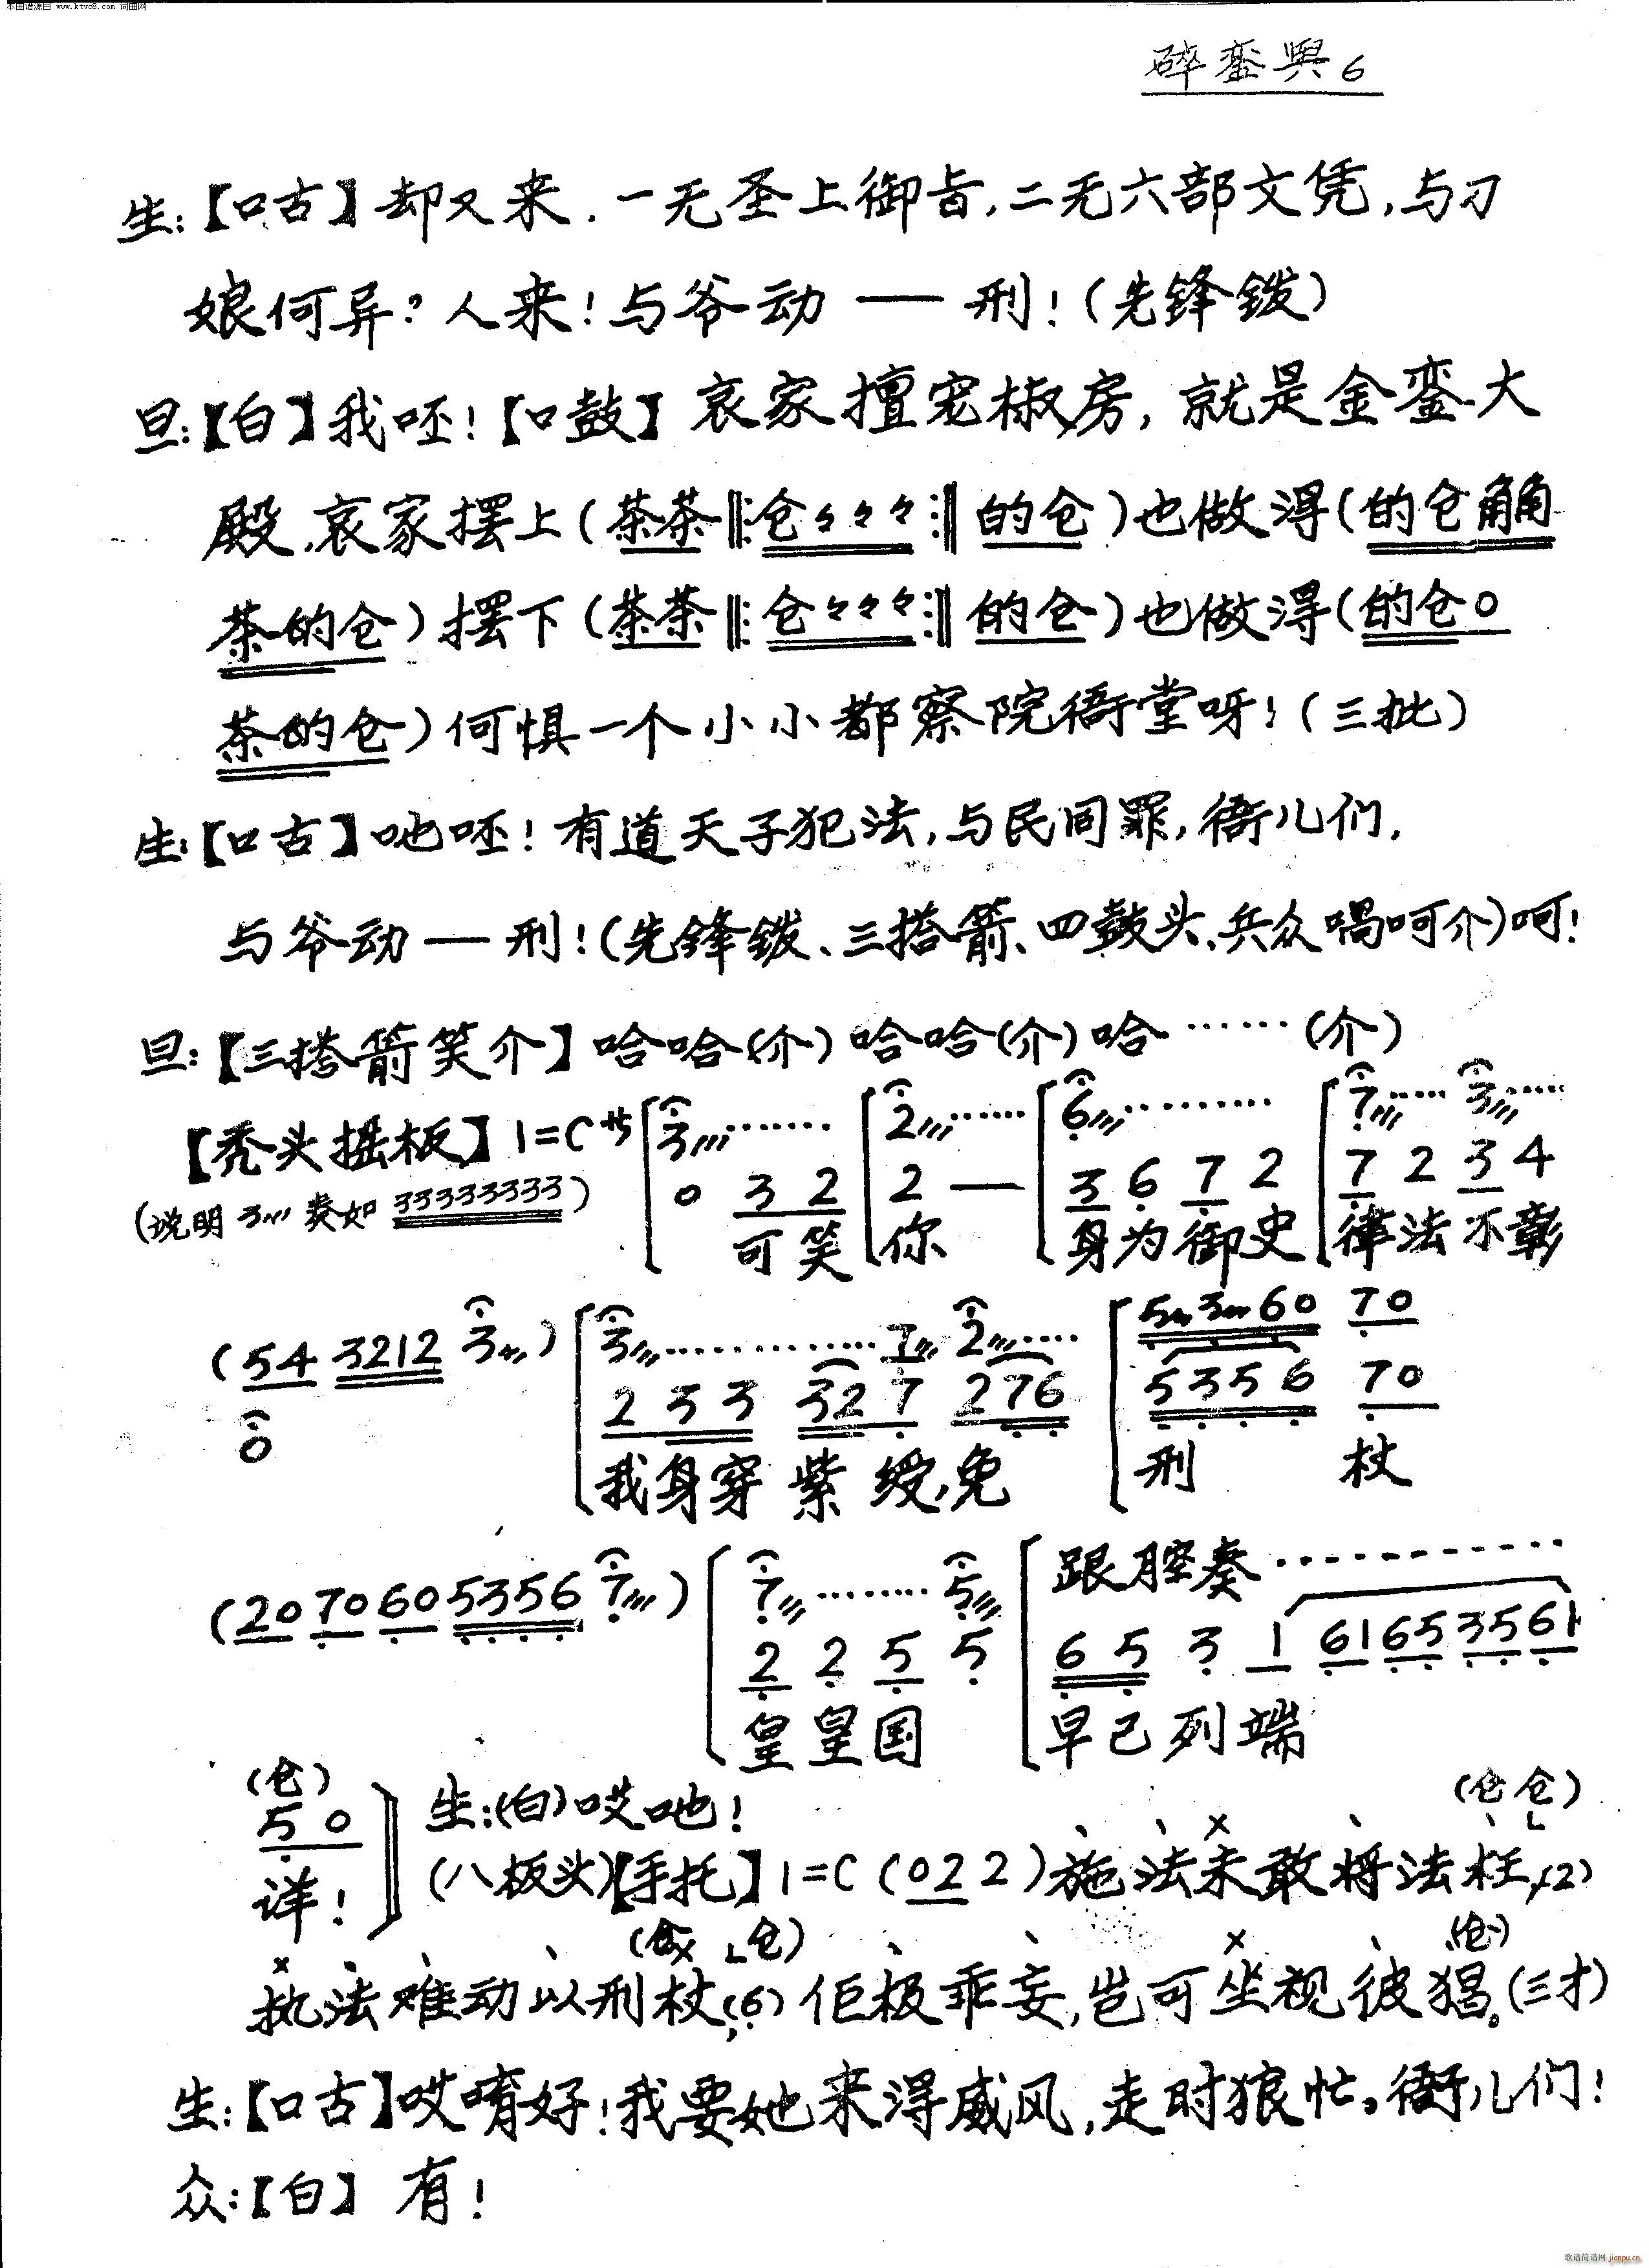 本曲谱源自 www.ktvc8.com 词曲网
碎銮舆6
生:【口古】却又来.一无圣上御旨,二无六部文凭,与刁
娘何异?人来!与爷动——刑!(先锋钹)
旦:【白】我呸!【口鼓】哀家擅宠椒房,就是金銮大
殿.哀家摆上(茶茶‖:仓々々々:‖的仓)也做得(的仓角角
茶的仓)摆下(茶茶‖:仓々々々:‖的仓)也做得(的仓0
茶的仓)何惧一个小小都察院衙堂呀!(三批)
生:【口古】吔呸!有道天子犯法,与民同罪,衙儿们.
与爷动—刑!(先锋钹、三搭箭、四鼓头、兵众喝呵介)呵!
旦:【三搭箭笑介】哈哈(介)哈哈(介)哈……(介)
3///…… 2///…… 6///……… 7///…… 3///……
【秃头摇板】1=C サ 0 3 2 2 — 3 6 7 2 7 2 3 4
(说明 3/// 奏如 33333333) 可笑 你 身为御史 律法不彰
(54 3212 3///) 3///…………… 7/// 2///…… 5///3///60 70
0 2 3 3 32 7 276 5356 70
我身穿紫绶,免 刑 杖
(20 70 60 5356 7///) 7///……… 5/// 跟腔奏…………
2 2 5 5 6 5 3 1 61 65 35 61
皇皇国 早已列端
(仓)
5 0 生:(白)哎吔! (仓仓)
详! (八板头)【手托】1=C (022)施法未敢将法枉,(2)
(仓 仓) (仓)
执法难动以刑杖(6)佢极乖妄,岂可坐视彼猖。(三才)
生:【口古】哎唷好!我要她来得威风,走时狼忙。衙儿们!
众:【白】有!
歌谱简谱网 jianpu.cn